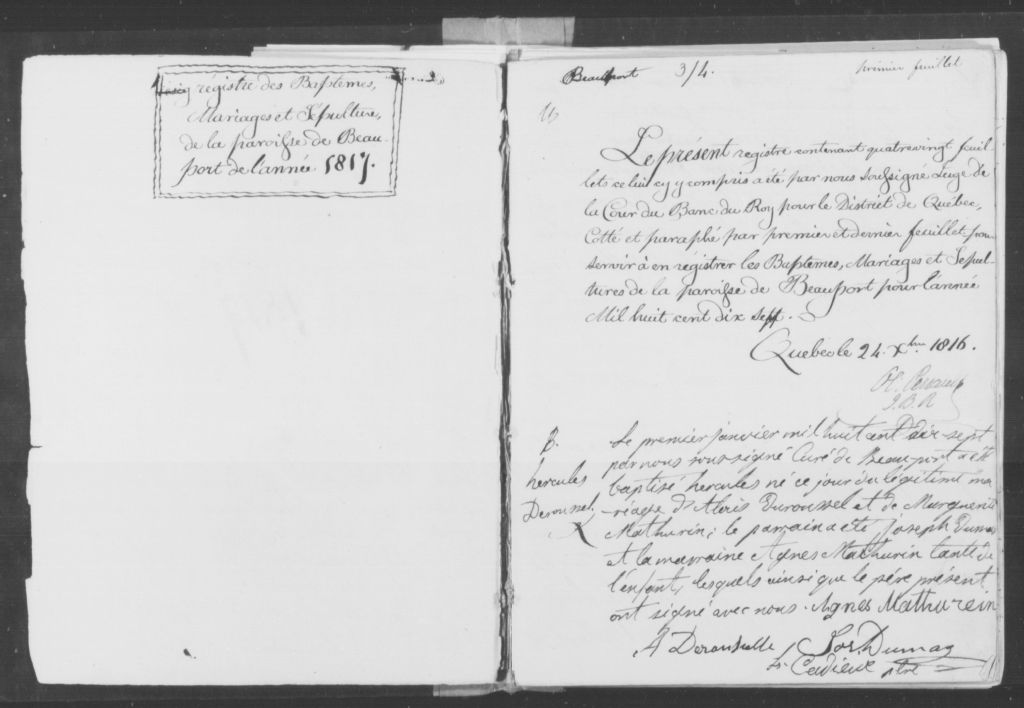 régistre des Baptemes,
Mariages et Sepultures,
de la paroisse de Beau-
port de l'année 1817.
Beauport 3/4. premier feuillet
Le présent registre contenant quatrevingt feuil
lets celui cy y compris a été par nous soussigné Juge de
la Cour du Banc du Roy pour le District de Québec,
Cotté et paraphé par premier et dernier feuillet pour
servir à en régistrer les Baptemes, Mariages et Sepul-
tures de la paroisse de Beauport pour l'année
Mil huit cent dix sept.
Quebec le 24. Xbre 1816.
J.B.R
B.
hercules
Deroussel
Le premier janvier mil huit cent dix-sept
par nous soussigné Curé de Beauport a été
baptisé hercules né ce jour du légitime ma
riage d'Alexis Duroussel et de Marguerite
Mathurin; le parrain a été Joseph Dumas
et la marraine Agnes Mathurin tante de
l'enfant, lesquels ainsi que le père présent
ont signé avec nous. Agnes Mathurein
A Derouselle Jos. Dumas
Cadieux ptre